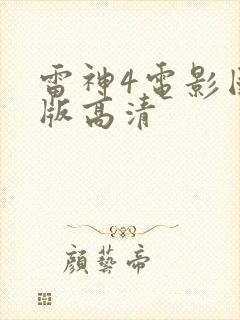 雷神4电影
版高清
顏藝帝